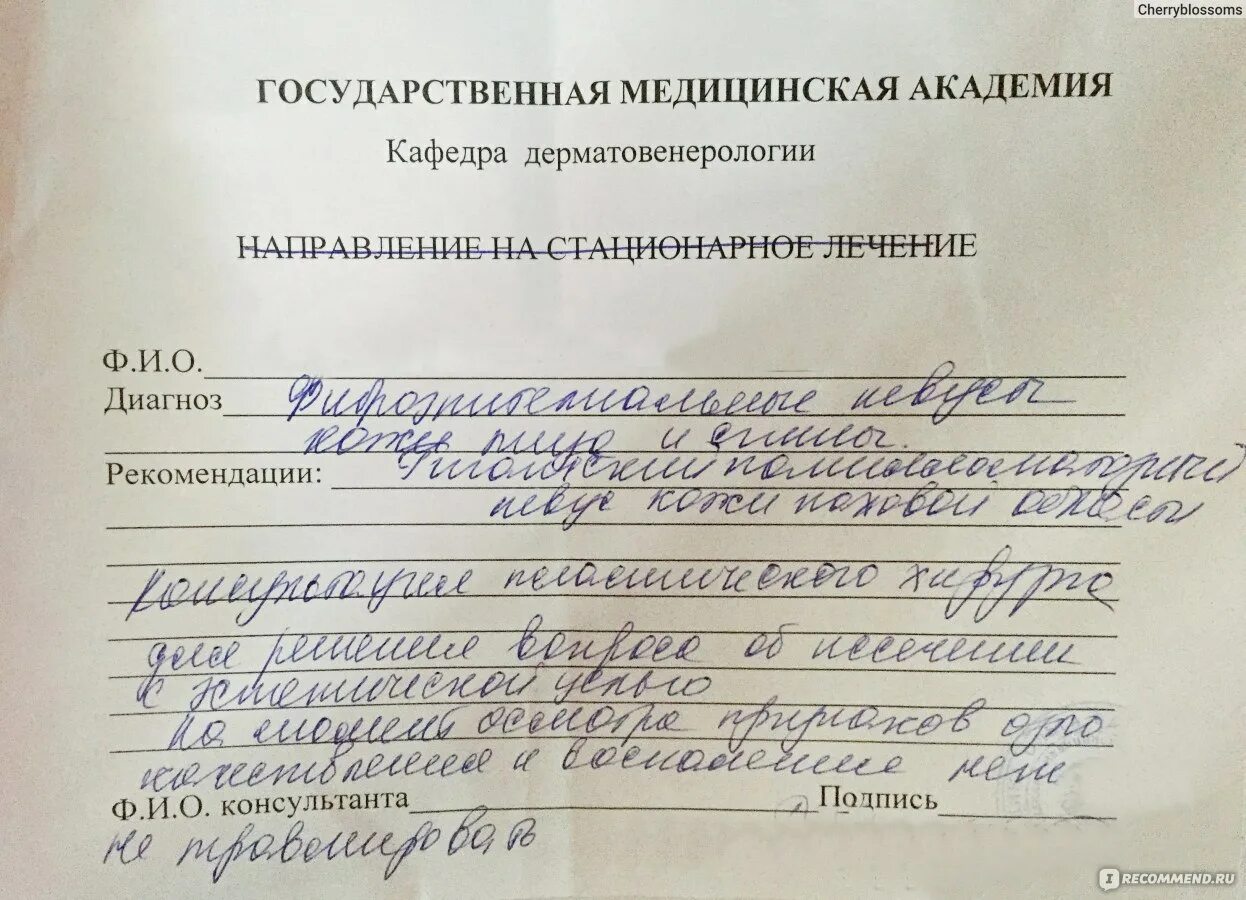 Cherryblossoms
ГОСУДАРСТВЕННАЯ МЕДИЦИНСКАЯ АКАДЕМИЯ
Кафедра дерматовенерологии
НАПРАВЛЕНИЕ НА СТАЦИОНАРНОЕ ЛЕЧЕНИЕ
Ф.И.О.
Диагноз Фиброэпителиальные невусы
кожи лица и спины.
Рекомендации: Гигантский
невус кожи паховой области
Консультация пластического хирурга
для решения вопроса об иссечении
с эстетической целью
На момент осмотра признаков озло
качествления и воспаления нет
Ф.И.О. консультанта Подпись
не травмировать
IRECOMMEND.RU